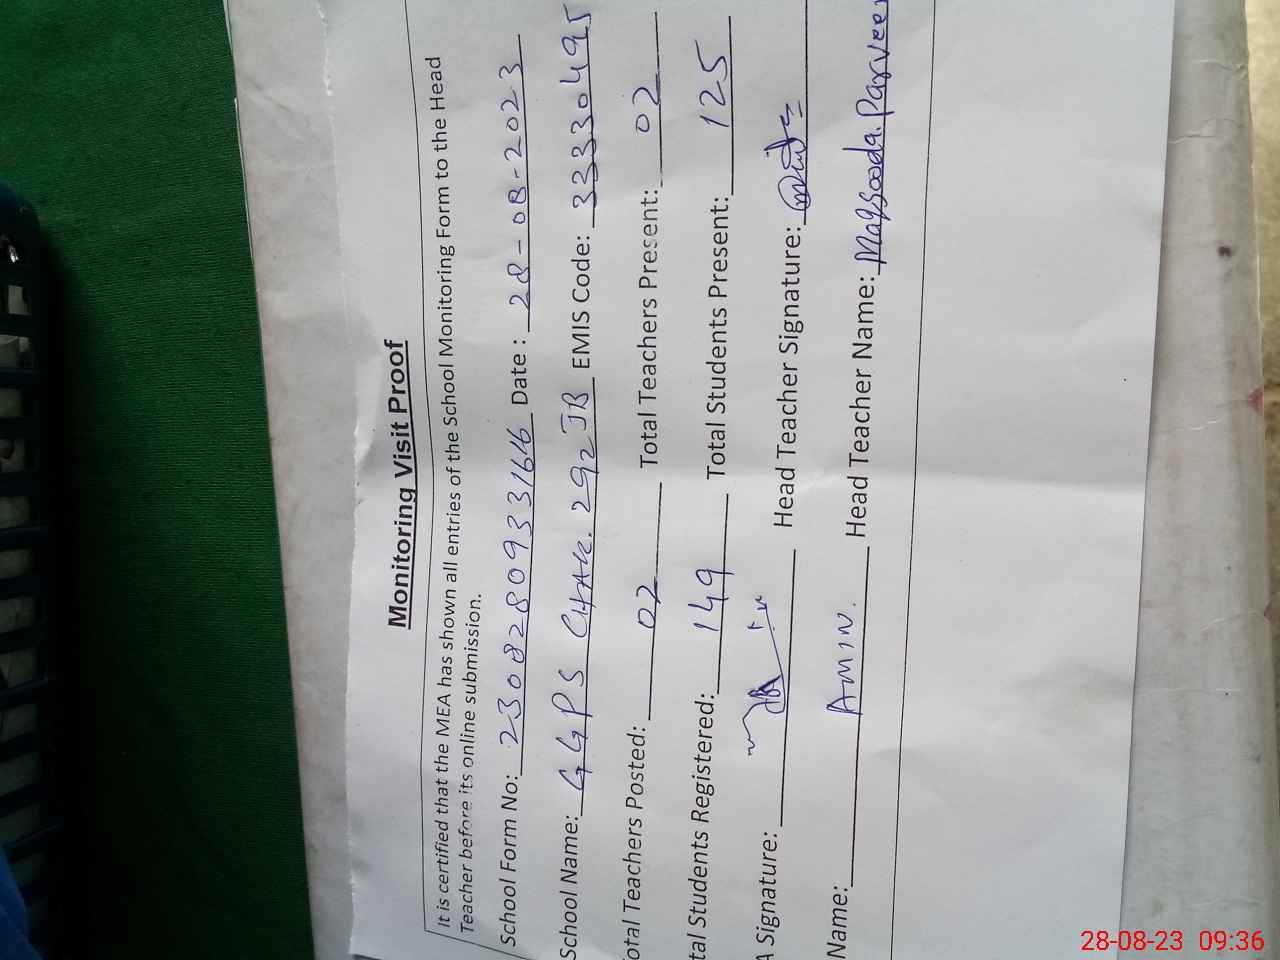 Monitoring Visit Proof
It is certified that the MEA has shown all entries of the School Monitoring Form to the Head
Teacher before its online submission.
School Form No: 23082809331646 Date : 28-08-2023
School Name: GGPS CHAK. 292 JB EMIS Code: 33330495
otal Teachers Posted: 02 Total Teachers Present: 02
tal Students Registered: 149 Total Students Present: 125
A Signature: Head Teacher Signature:
Name: AMIN. Head Teacher Name: Maqsooda Parveen
28-08-23 09:36